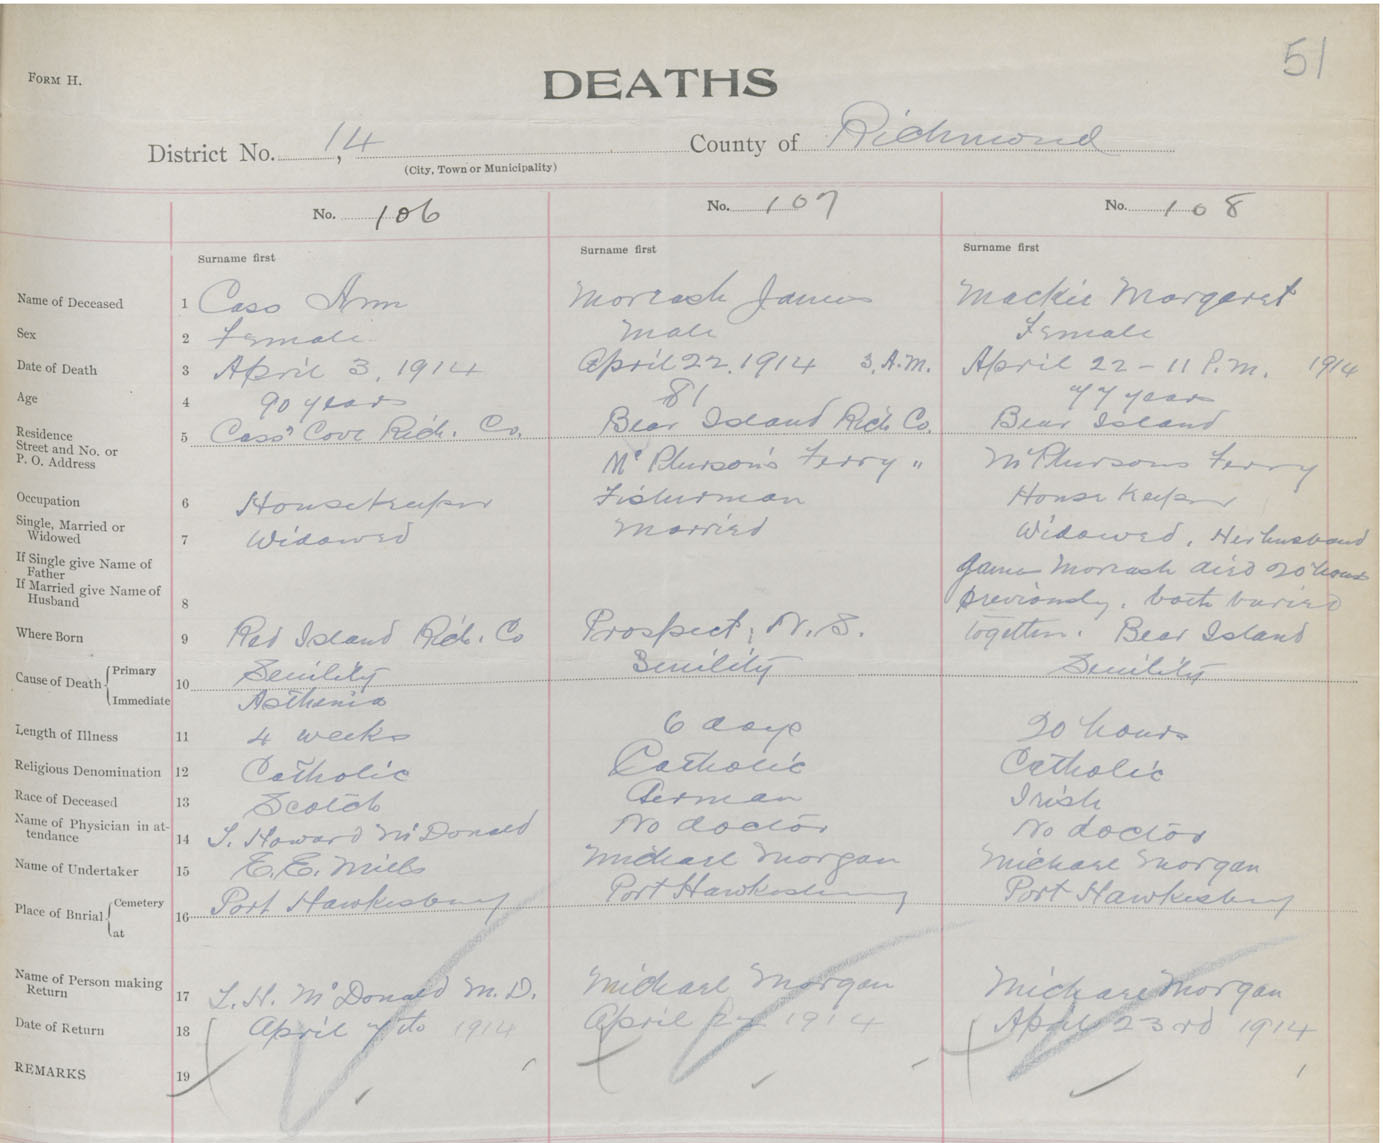 51
FORM H.
DEATHS
District No. 14, County of Richmond
(City, Town or Municipality)
No. 106 No. 107 No. 108
Surname first Surname first Surname first
Name of Deceased 1 Cass Ann Moreash James Mackie Margaret
Sex 2 Female Male Female
Date of Death 3 April 3, 1914 April 22, 1914 3, A.M. April 22 - 11 P.M. 1914
Age 4 90 years 81 77 years
Residence Street and No. or P. O. Address 5 Cass' Cove Rich. Co. Bear Island Rich Co. Bear Island
McPherson's Ferry " McPhersons Ferry
Occupation 6 Housekeeper Fisherman House Keeper
Single, Married or Widowed 7 Widowed Married Widowed, Her husband
If Single give Name of Father
If Married give Name of Husband 8 James Moreash died 20 hours
previously, both buried
Where Born 9 Red Island Rich. Co Prospect, N.S. together. Bear Island
Cause of Death { Primary Immediate 10 Senility Senility Senility
Asthenia
Length of Illness 11 4 weeks 6 days 20 hours
Religious Denomination 12 Catholic Catholic Catholic
Race of Deceased 13 Scotch German Irish
Name of Physician in attendance 14 L. Howard McDonald No doctor No doctor
Name of Undertaker 15 E.E. Mills Michael Morgan Michael Morgan
Place of Burial { Cemetery at 16 Port Hawkesbury Port Hawkesbury Port Hawkesbury
Name of Person making Return 17 L. H. McDonald M.D. Michael Morgan Michael Morgan
Date of Return 18 April 7th 1914 April 1914 April 23rd 1914
REMARKS 19